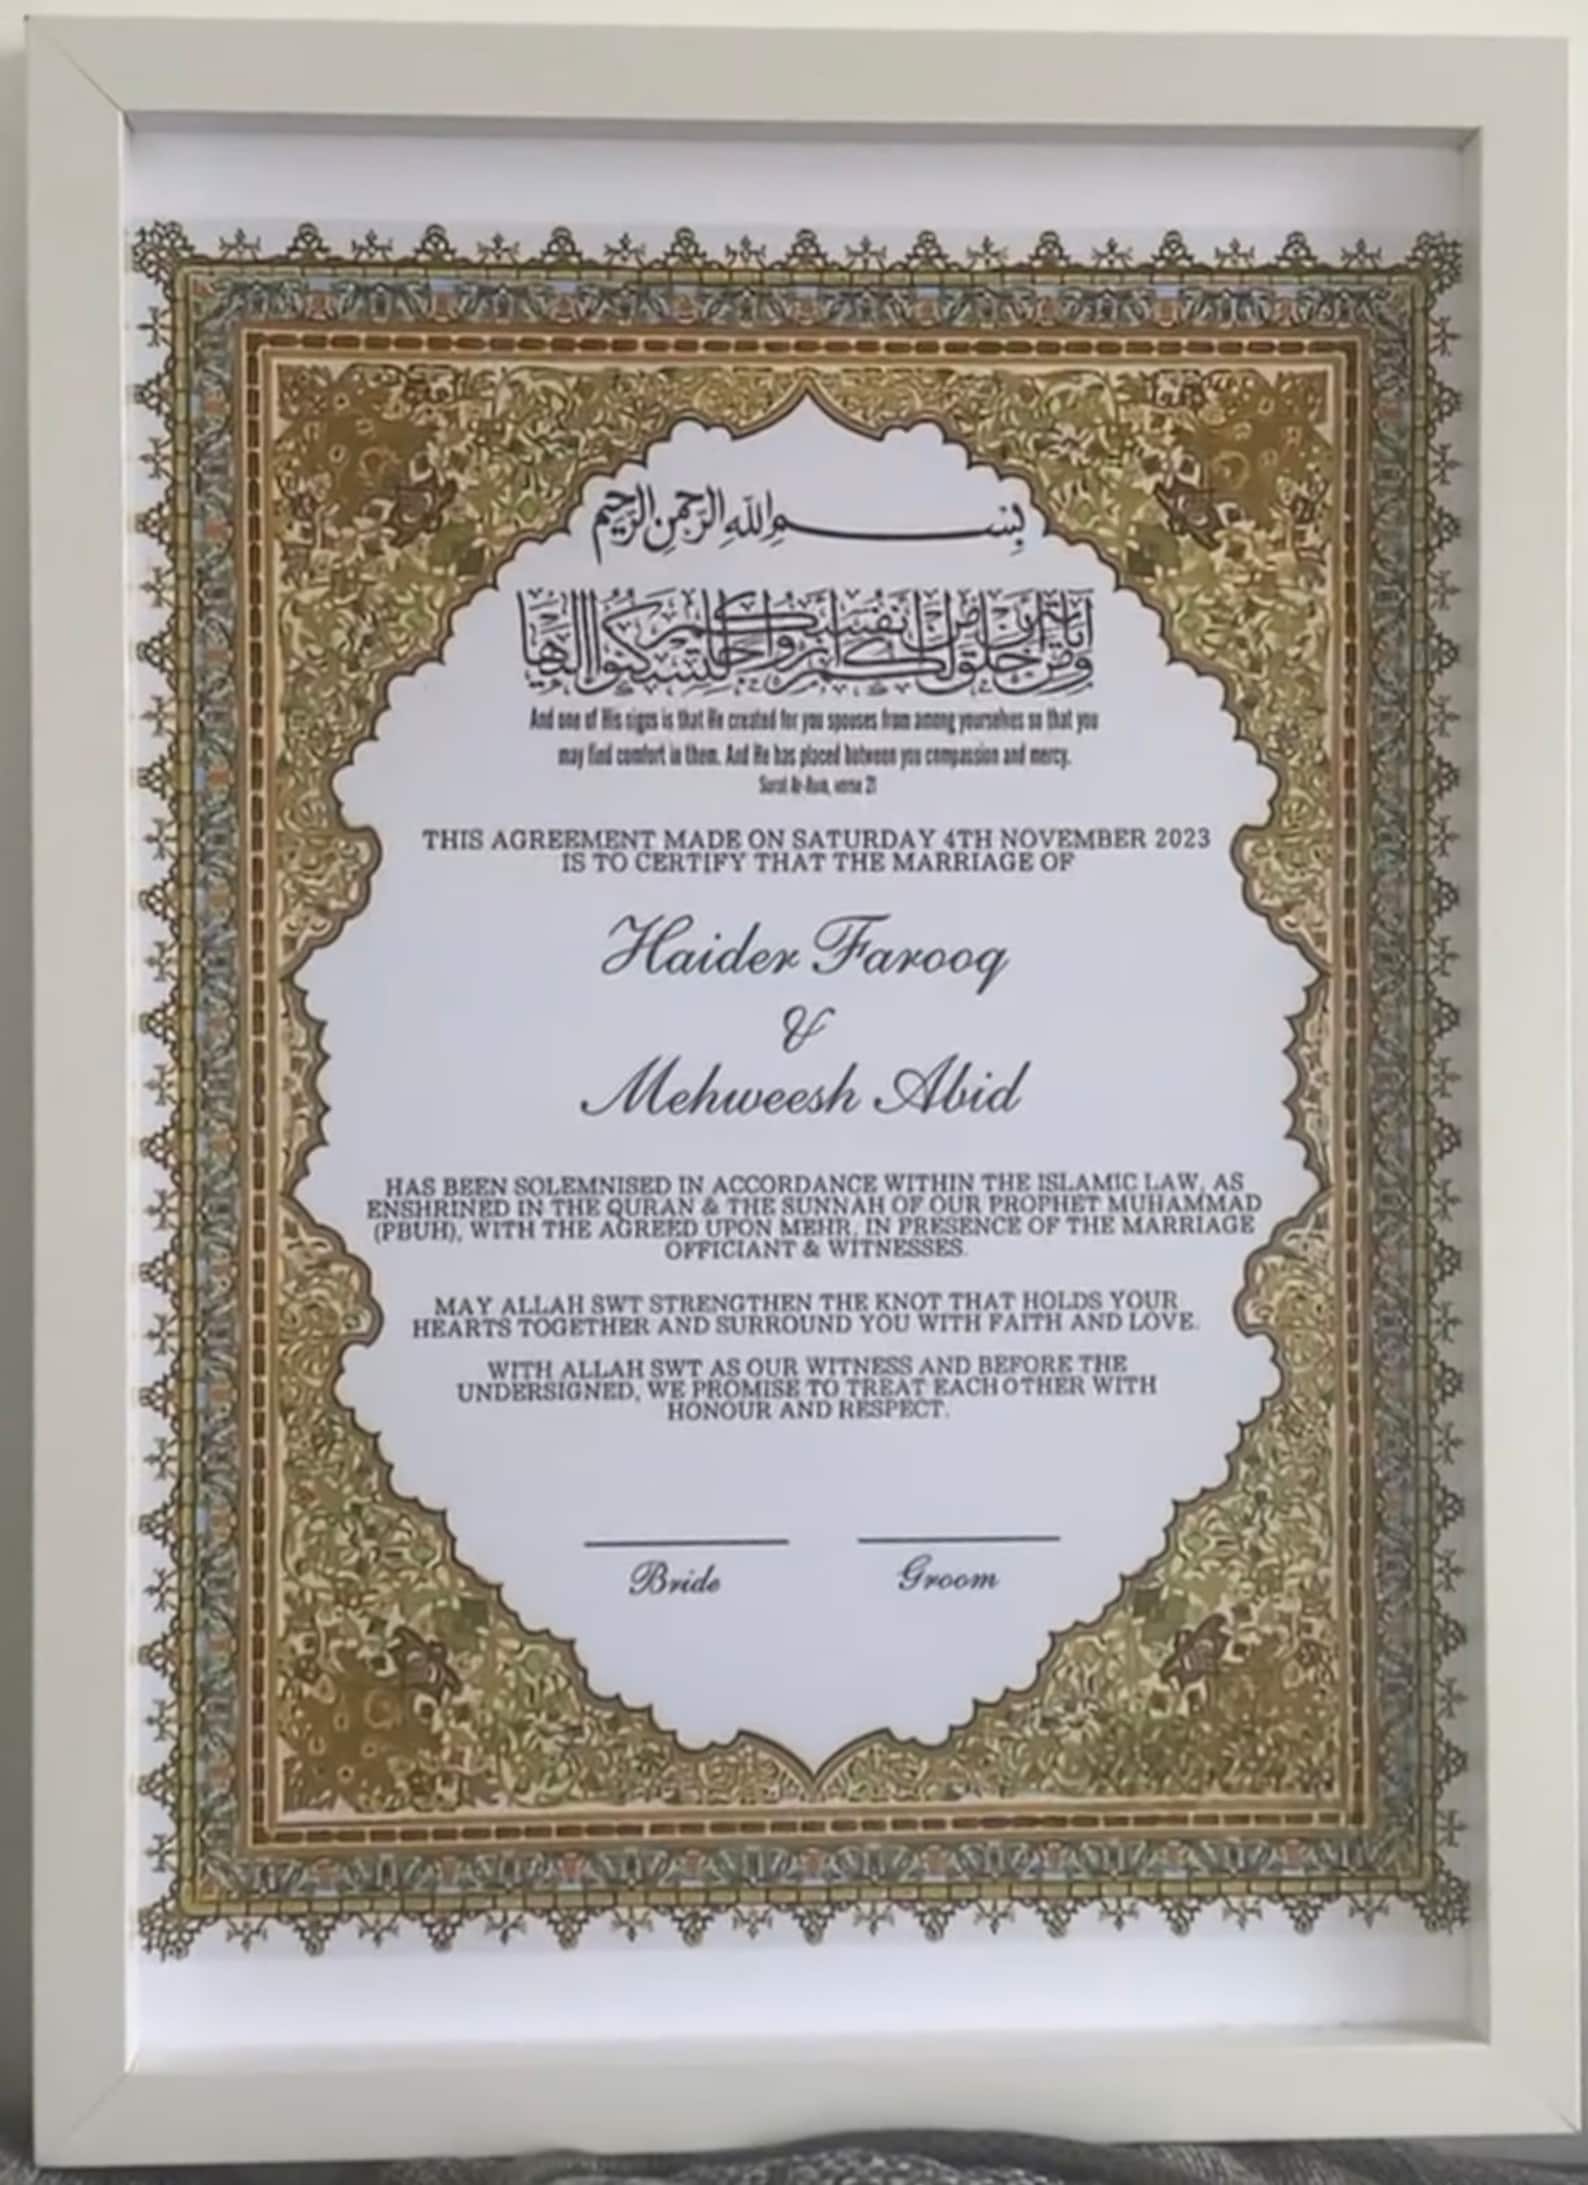 بسم الله الرحمن الرحيم
ومن آياته أن خلق لكم من أنفسكم أزواجا لتسكنوا إليها
And one of His signs is that He created for you spouses from among yourselves so that you
may find comfort in them. And He has placed between you compassion and mercy.
Surat Ar-Rum, verse 21
THIS AGREEMENT MADE ON SATURDAY 4TH NOVEMBER 2023
IS TO CERTIFY THAT THE MARRIAGE OF
Haider Farooq
&
Mehweesh Abid
HAS BEEN SOLEMNISED IN ACCORDANCE WITHIN THE ISLAMIC LAW, AS
ENSHRINED IN THE QURAN & THE SUNNAH OF OUR PROPHET MUHAMMAD
(PBUH), WITH THE AGREED UPON MEHR, IN PRESENCE OF THE MARRIAGE
OFFICIANT & WITNESSES.
MAY ALLAH SWT STRENGTHEN THE KNOT THAT HOLDS YOUR
HEARTS TOGETHER AND SURROUND YOU WITH FAITH AND LOVE.
WITH ALLAH SWT AS OUR WITNESS AND BEFORE THE
UNDERSIGNED, WE PROMISE TO TREAT EACH OTHER WITH
HONOUR AND RESPECT.
Bride Groom